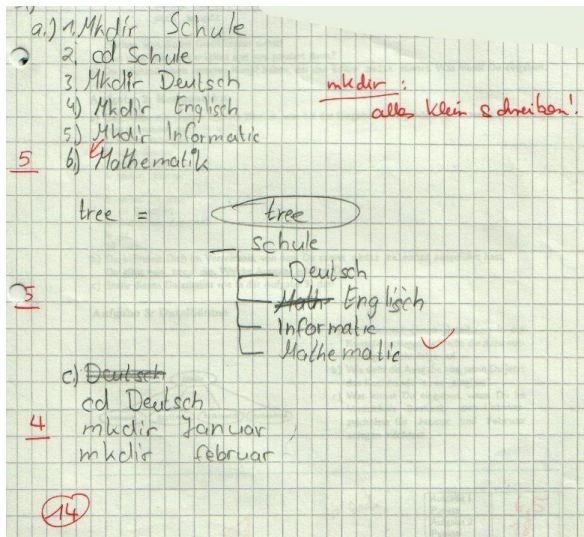 a.) 1. Mkdir Schule
2. cd Schule
3. Mkdir Deutsch
4) Mkdir Englisch
5) Mkdir Informatic
5 6) Mathematik
mkdir :
alles klein schreiben!
tree = tree
Schule
Deutsch
5 Math Englisch
Informatic
Mathematic
c) Deutsch
cd Deutsch
4 mkdir Januar
mkdir februar
14